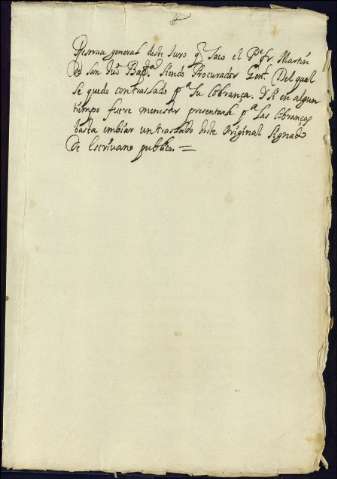 general deste Juro q̃ saco el Pe fr. Martin
de san Juo Bapta siendo Procurador Genl. Del qual
se quedo con traslado pa su Cobrança. Y si en algun
tiempo fuere menester presentarse pa las Cobranças
basta imbiar un traslado deste Original Signado
De Escrivano publico.